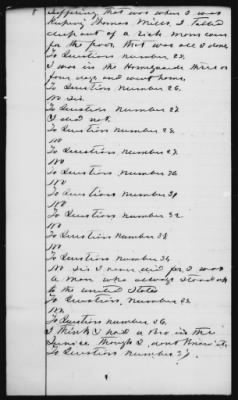 8 suffering that was when I was
Keeping Thomas Mills. I talked
a rich mans corn
for the poor that was all I done
To Question Number 25.
I was in the Homeguards three or
four days and went home,
To Question Number 26.
no sir
To Question Number 27
I did not.
To Question Number 28.
no
To Question Number 29.
no
To Question Number 30
no
To Question Number 31
no
To Question Number 32
no
To Question Number 33
no
To Question Number 34
no sir I never did for I was
a man who always stood up
to the united States
To Question Number 35
no
To Question Number 36.
I think I had a Bro in the
Service though I dont Know it.
To Question Number 37.